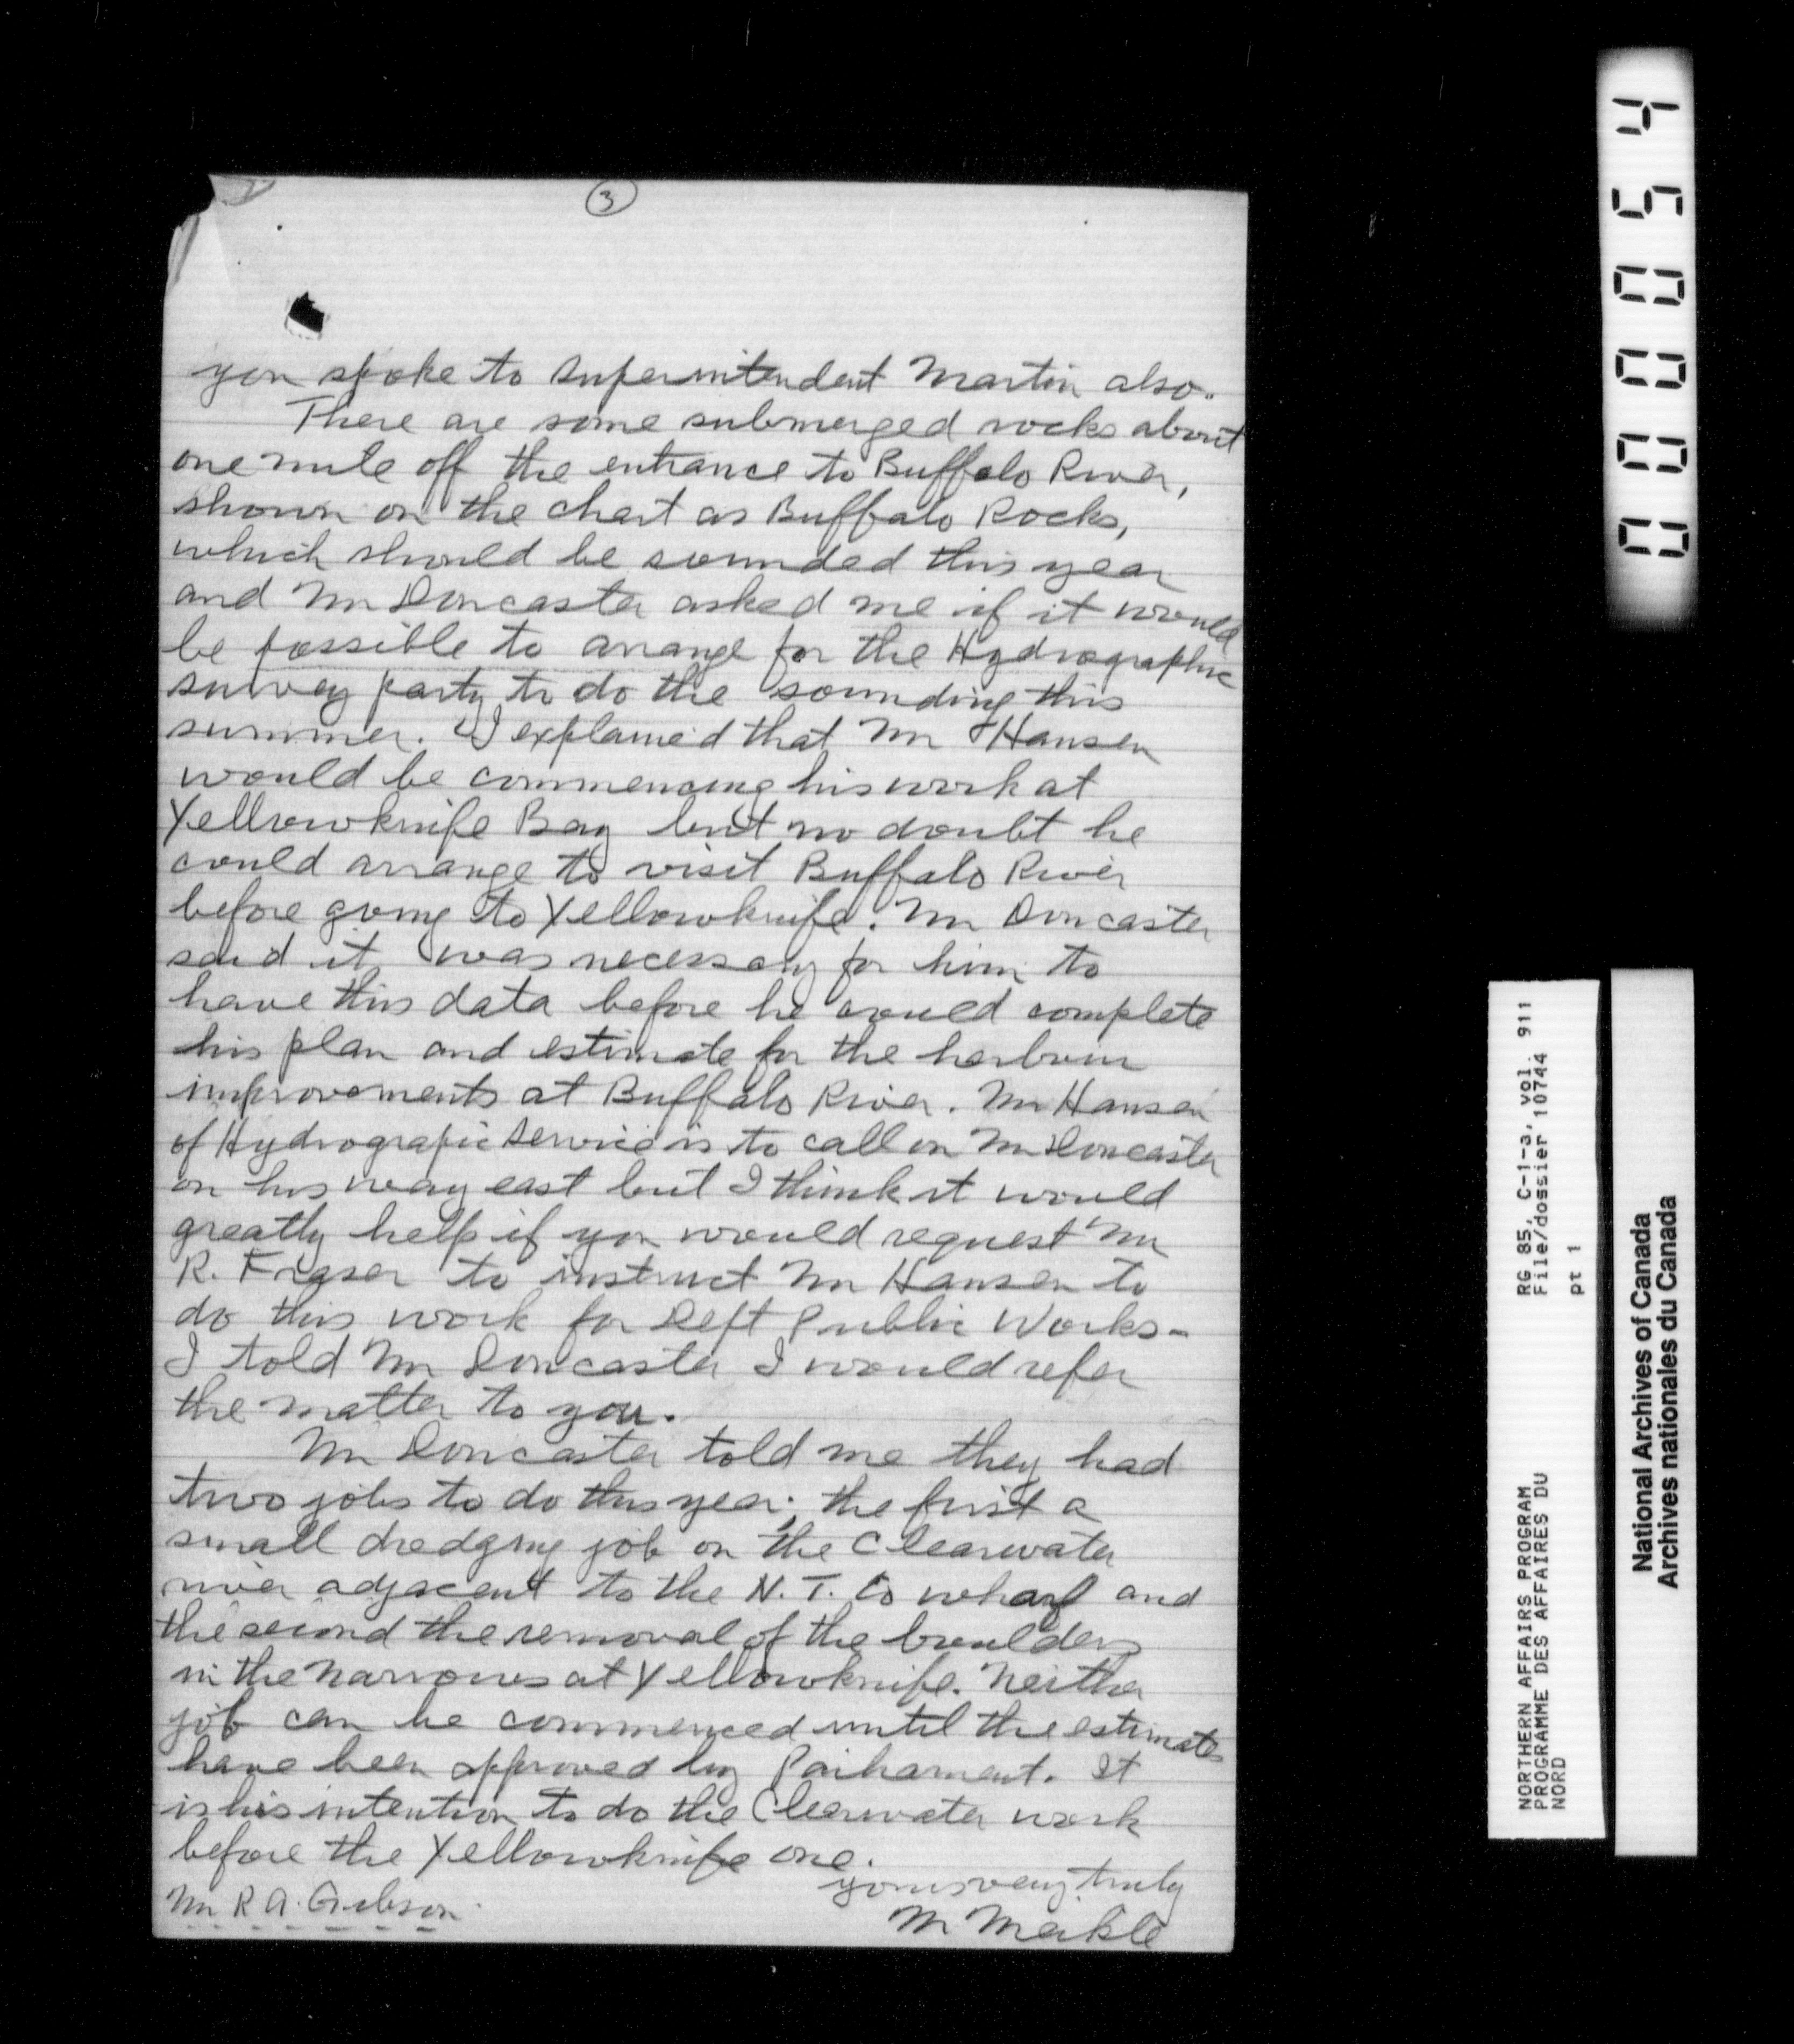 3
you spoke to Superintendent Martin also.
There are some submerged rocks about
one mile off the entrance to Buffalo River,
shown on the chart as Buffalo Rocks,
which should be sounded this year
and Mr Doncaster asked me if it would
be possible to arrange for the Hydrographic
survey party to do the sounding this
summer. I explained that Mr Hansen
would be commencing his work at
Yellowknife Bay but no doubt he
could arrange to visit Buffalo River
before going to Yellowknife. Mr Doncaster
said it was necessary for him to
have this data before he could complete
his plan and estimate for the harbour
improvements at Buffalo River. Mr Hansen
of Hydrografic Service is to call on Mr Doncaster
on his way east but I think it would
greatly help if you would request Mr
R. Fraser to instruct Mr Hansen to
do this work for Dept Public Works -
I told Mr Doncaster I would refer
the matter to you.
Mr Doncaster told me they had
two jobs to do this year; the first a
small dredging job on the Clearwater
river adjacent to the N. T. Co wharf and
the second the removal of the boulders
in the Narrows at Yellowknife. Neither
job can be commenced until the estimates
have been approved by Parliament. It
is his intention to do the Clearwater work
before the Yellowknife one.
yours very truly
M Meikle
Mr R A. Gibson
000054
RG 85, C-1-a, vol. 911
File/dossier 10744
pt 1
NORTHERN AFFAIRS PROGRAM
PROGRAMME DES AFFAIRES DU
NORD
National Archives of Canada
Archives nationales du Canada